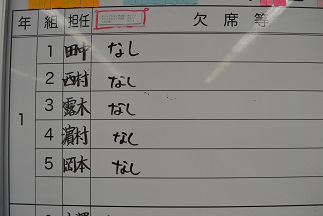 年 組 担任 欠席等
1
1 田中 なし
2 西村 なし
3 露木 なし
4 濵村 なし
5 岡本 なし